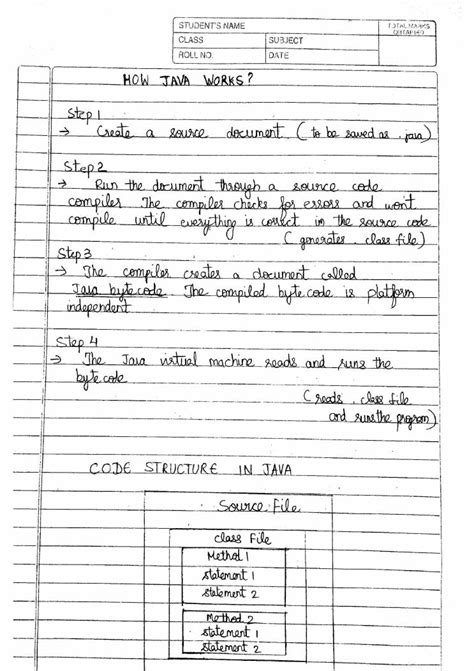 STUDENT'S NAME
TOTAL MARKS
OBTAINED
CLASS
SUBJECT
ROLL NO.
DATE
HOW JAVA WORKS?
Step 1
→ Create a source document (to be saved as .java)
Step 2
→ Run the document through a source code
compiler. The compiler checks for errors and won't
compile until everything is correct in the source code
(generates .class file)
Step 3
→ The compiler creates a document called
Java bytecode. The compiled byte code is platform
independent
Step 4
→ The Java virtual machine reads and runs the
byte code
(reads .class file
and runs the program)
CODE STRUCTURE IN JAVA
Source File
class File
Method 1
statement 1
statement 2
Method 2
statement 1
statement 2